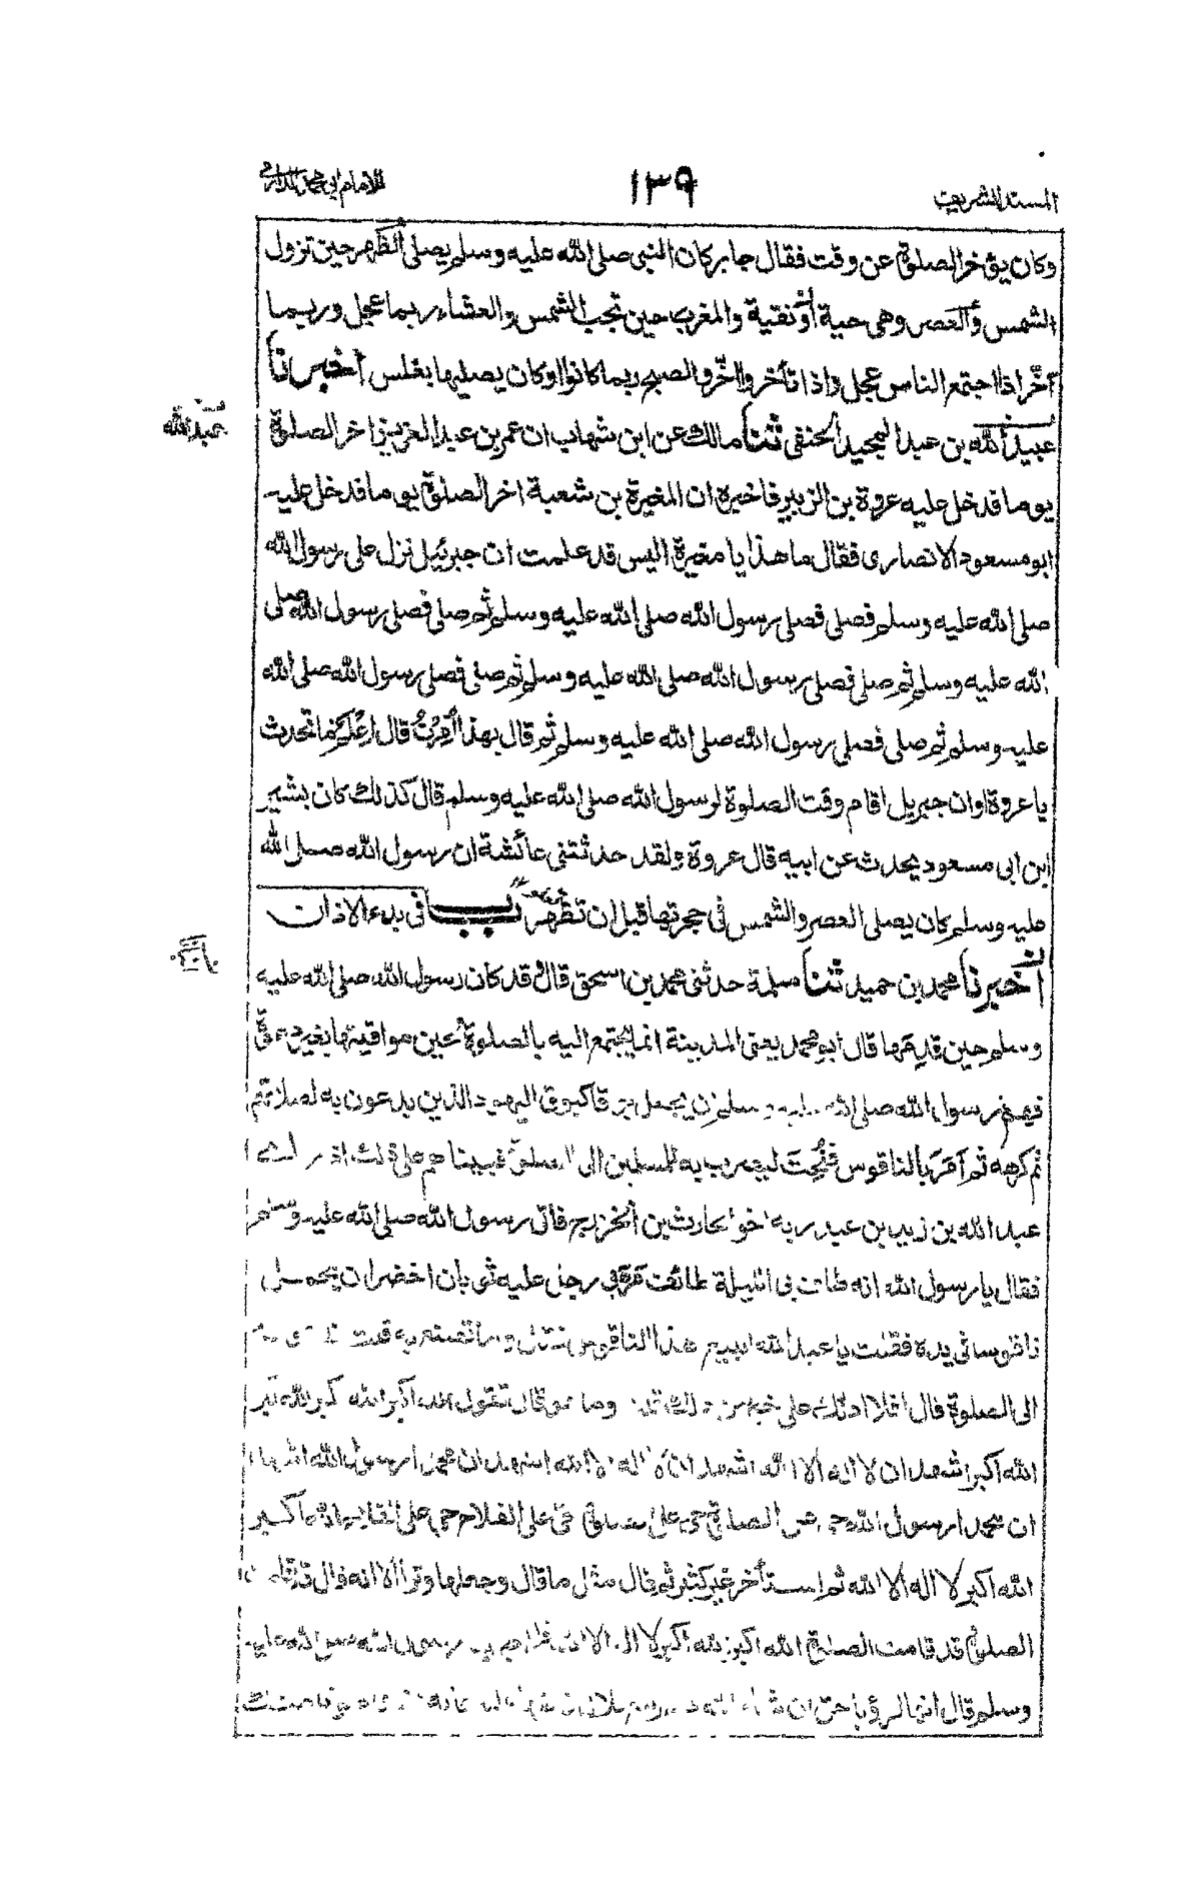 المسند الشريف ١٣٩ للامام ابي محمد الدارمي
وكان يؤخر الصلوة عن وقت فقال جابر كان النبى صلى الله عليه وسلم يصلى الظهر حين تزول
الشمس والعصر وهى حية أو نقية والمغرب حين تجب الشمس والعشاء ربما عجل وربما
آخر اذا اجتمع الناس عجل واذا تأخروا اخّر والصبح ربما كانوا او كان يصليها بغلس أخبرنا
عبيد الله بن عبد المجيد الحنفى ثنا مالك عن ابن شهاب ان عمر بن عبد العزيز اخر الصلوة
عبد الله
يوما فدخل عليه عروة بن الزبير فاخبره ان المغيرة بن شعبة اخر الصلوة يوما فدخل عليه
ابو مسعود الانصارى فقال ما هذا يا مغيرة اليس قد علمت ان جبرئيل نزل على رسول الله
صلى الله عليه وسلم فصلى فصلى رسول الله صلى الله عليه وسلم ثم صلى فصلى رسول الله صلى
الله عليه وسلم ثم صلى فصلى رسول الله صلى الله عليه وسلم ثم صلى فصلى رسول الله صلى الله
عليه وسلم ثم صلى فصلى رسول الله صلى الله عليه وسلم ثم قال بهذا أُمِرْتُ قال اعْلَمْ ما تحدث
يا عروة اوان جبريل اقام وقت الصلوة لرسول الله صلى الله عليه وسلم قال كذلك كان بشير
ابن ابى مسعود يحدث عن ابيه قال عروة ولقد حدثتنى عائشة ان رسول الله صلى الله
عليه وسلم كان يصلى العصر والشمس فى حجرتها قبل ان تظهر باب فى بدء الاذان
أخبرنا محمد بن حميد ثنا سلمة حدثنى محمد بن اسحق قال وقد كان رسول الله صلى الله عليه
وسلم حين قدمها قال ابو محمد يعنى المدينة انما يجتمع اليه بالصلوة لحين مواقيتها بغير دعوة
فهم رسول الله صلى الله عليه وسلم ان يجعل بوقا كبوق اليهود الذين يدعون به لصلاتهم
ثم كرهه ثم اَمَرَ بالناقوس فَنُحِتَ ليضرب به للمسلمين الى الصلوة فبينا هم على ذلك اذ
عبد الله بن زيد بن عبد ربه اخو الحارث بن الخزرج فاتى رسول الله صلى الله عليه وسلم
فقال يا رسول الله انه طاف بى الليلة طائف مَرَّ بى رجل عليه ثوبان اخضران يحمل
ناقوسا فى يده فقلت يا عبد الله اتبيع هذا الناقوس فقال وما تصنع به قلت
الى الصلوة قال افلا ادلك على خير من ذلك قلت وما هو قال تقول الله اكبر الله اكبر الله اكبر
الله اكبر اشهد ان لا اله الا الله اشهد ان لا اله الا الله اشهد ان محمدا رسول الله اشهد
ان محمدا رسول الله حى على الصلوة حى على الصلوة حى على الفلاح حى على الفلاح الله اكبر
الله اكبر لا اله الا الله ثم استأخر غير كثير ثم قال مثل ما قال وجعلها وترا الا انه قال قد قامت
الصلوة قد قامت الصلوة الله اكبر الله اكبر لا اله الا الله رسول الله صلى الله عليه
وسلم قال انها لرؤيا حق ان شاء الله